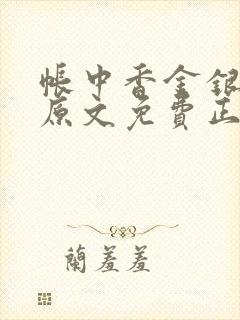 帳中香金銀
原文免費正
蘭羞羞